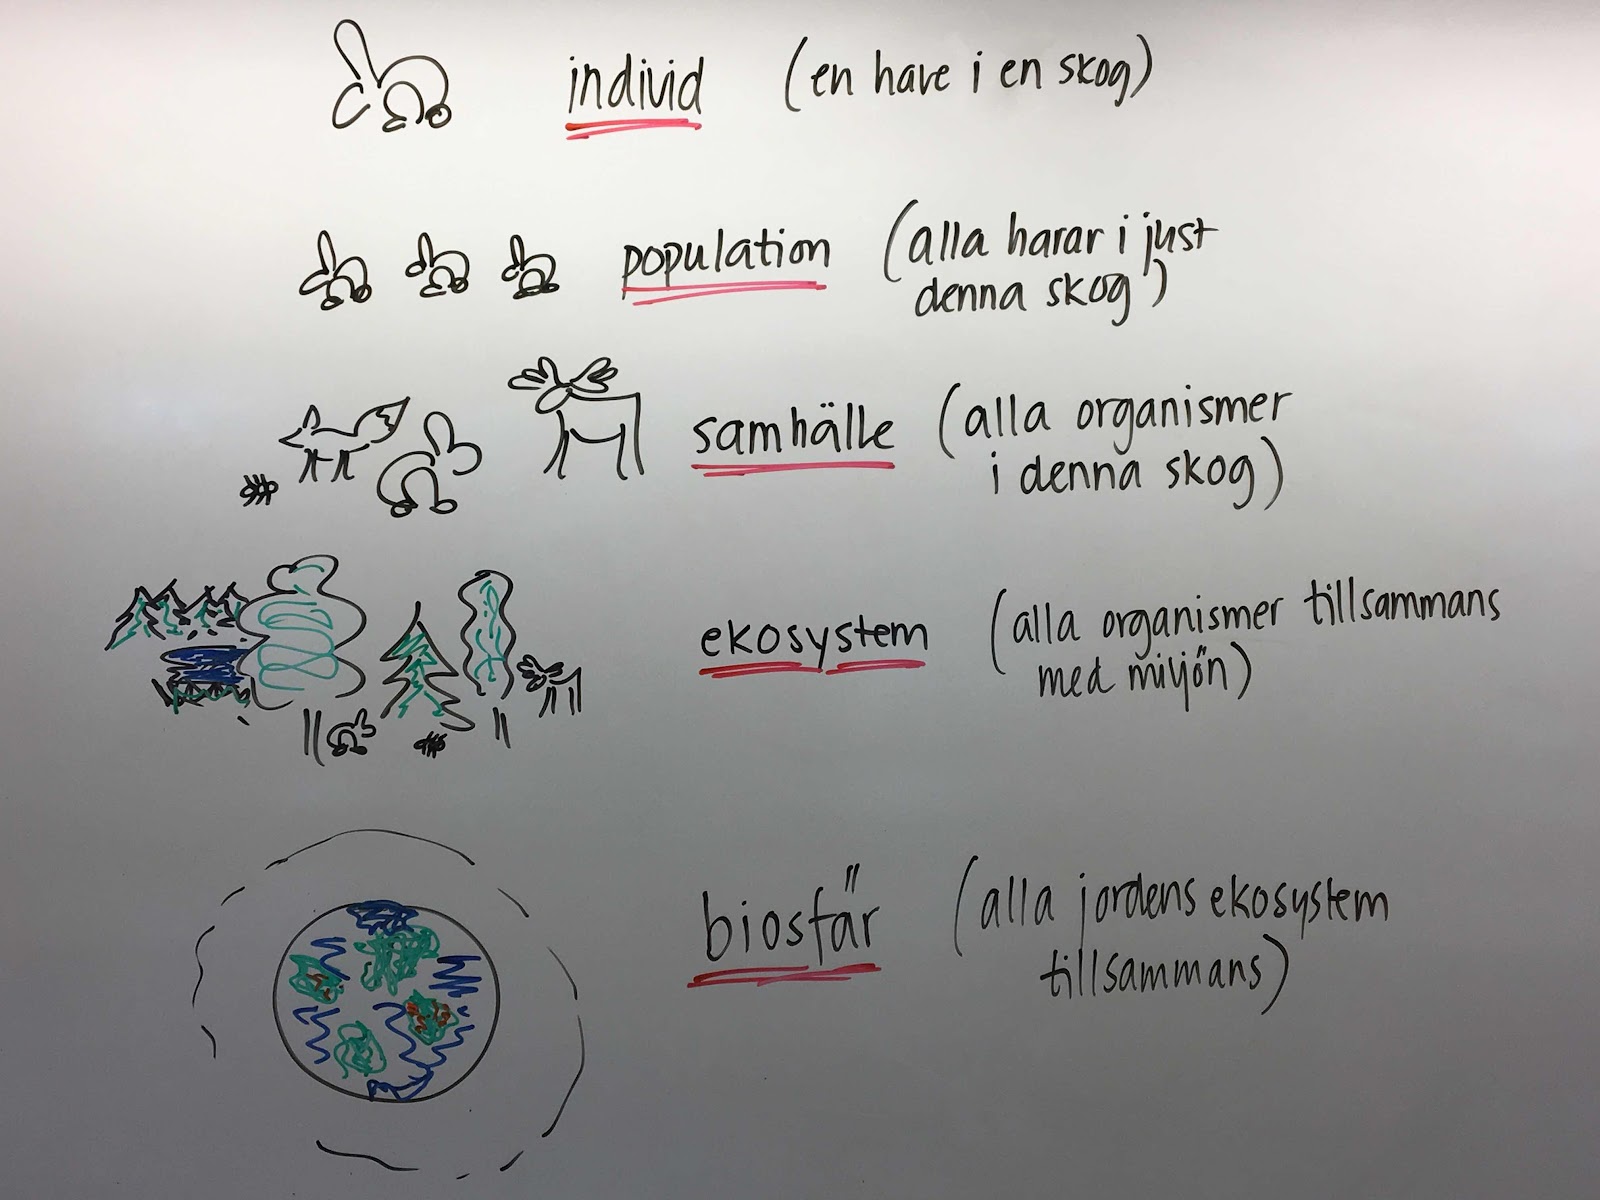 individ (en hare i en skog)
population (alla harar i just
denna skog)
samhälle (alla organismer
i denna skog)
ekosystem (alla organismer tillsammans
med miljön)
biosfär (alla jordens ekosystem
tillsammans)